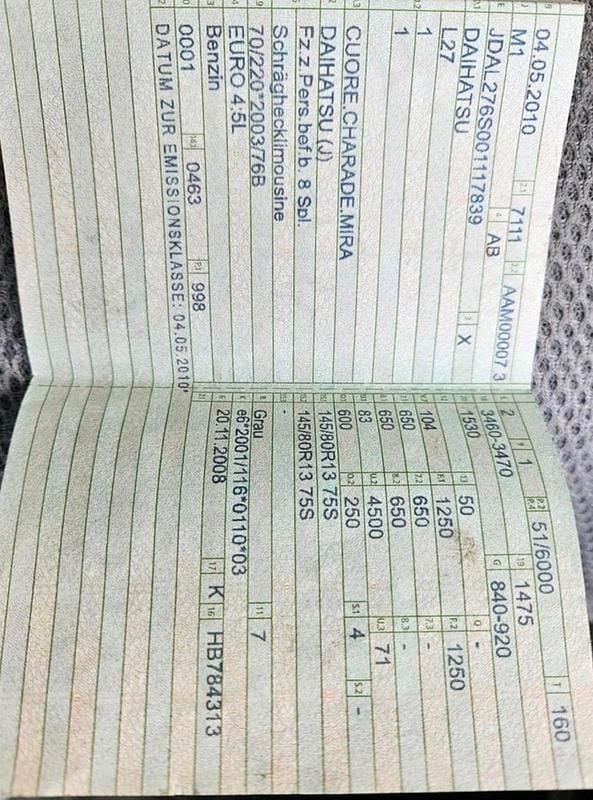 04.05.2010 7111 AAM00007 3
M1 AB
JDAL276S001117839
DAIHATSU X
L27
1
1
CUORE,CHARADE,MIRA
DAIHATSU (J)
Fz.z.Pers.bef.b. 8 Spl.
Schräghecklimousine
70/220*2003/76B
EURO 4;5L
Benzin
0001 0463 998
DATUM ZUR EMISSIONSKLASSE: 04.05.2010'
2 1 51/6000 160
3460-3470 1475
1530 50 840-920
104 1250 - 1250
650 650 -
650 650 -
83 4500 71
600 250 4 -
145/80R13 75S
145/80R13 75S
-
Grau 7
e6*2001/116*0110*03
20.11.2008 K HB784313